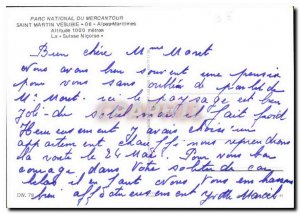 PARC NATIONAL DU MERCANTOUR
SAINT MARTIN VÉSUBIE - 06 - Alpes-Maritimes
Altitude 1000 mètres
La « Suisse Niçoise »
Bien chère Mme Moret
Nous avons bien souvent une pensée
pour vous sans oublier de parler de
M. Moret. Ici le paysage est bien
joli - du soleil mais il fait froid
Heureusement j'avais choisi un
appartement chauffé. Nous reprendrons
la route le 24 Mai. Pour vous bon
courage dans votre
et en vous embrassant
bien affectueusement Yvette Marcel